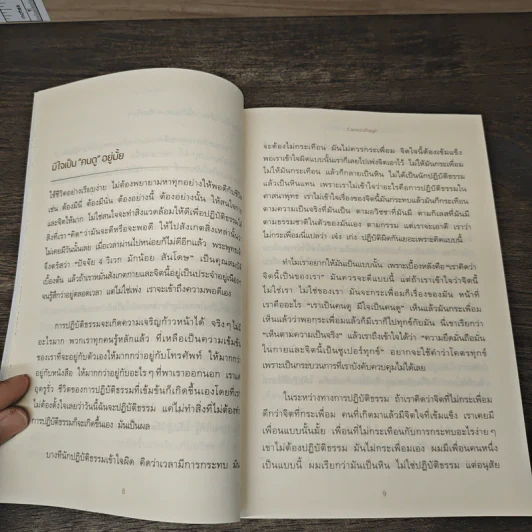 มีใจเป็น "คนดู" อยู่มั้ย
ใช้ชีวิตอย่างเรียบง่าย ไม่ต้องพยายามหาทุกอย่างให้พอดีกับชีวิต
เช่น ต้องมีนี่ ต้องมีนั่น ต้องอย่างนี้ ต้องอย่างนั้น ให้สนใจกาย
และจิตให้มาก ไม่ใช่สนใจจะทำสิ่งแวดล้อมให้ดีเพื่อปฏิบัติธรรม
สิ่งที่เรา "คิด" ว่ามันจะดีหรือจะพอดี ให้ไปสังเกตสิ่งเหล่านั้นว่า
ไม่เคยมีวันนั้นเลย เมื่อเวลาผ่านไปหน่อยก็ไม่ดีอีกแล้ว พระพุทธเจ้า
จึงตรัสว่า "ปัจจัย ๔ วิเวก มักน้อย สันโดษ" เป็นคุณสมบัติ
เบื้องต้น แล้วถ้าเราหมั่นสังเกตกายและจิตนี้อยู่เป็นประจำอยู่เนืองๆ
จนรู้สึกว่าอยู่ตลอดเวลา แต่ไม่ใช่เพ่ง เราจะเข้าถึงความพอดีเอง
การปฏิบัติธรรมจะเกิดความเจริญก้าวหน้าได้ จริงๆ ไม่มี
อะไรมาก พวกเราทุกคนรู้หลักแล้ว ที่เหลือเป็นความเข้มข้น
ของเราที่จะอยู่กับตัวเองให้มากกว่าอยู่กับโทรศัพท์ ให้มากกว่า
อยู่กับหนังสือ ให้มากกว่าอยู่กับอะไรๆ ที่พาเราออกนอก เราแค่
อุตุรู้ตัว ชีวิตของการปฏิบัติธรรมที่เข้มข้นก็เกิดขึ้นเองโดยที่เรา
ไม่ต้องตั้งใจเลยว่าวันนี้ฉันจะปฏิบัติธรรม แค่ไม่ทำสิ่งที่ไม่ต้องทำ
การปฏิบัติธรรมก็จะเกิดขึ้นเอง มันเป็นผล
บางทีนักปฏิบัติธรรมเข้าใจผิด คิดว่าเวลามีการกระทบ มัน
8
จะต้องไม่กระเทือน มันไม่ควรกระเพื่อม จิตใจนี้ต้องเข้มแข็ง
พอเราเข้าใจผิดแบบนั้นเราก็เลยไปเพ่งจิตเอาไว้ ไม่ให้มันกระเพื่อม
ไม่ให้มันกระเทือน แล้วก็กลายเป็นหิน ไม่ได้เป็นนักปฏิบัติธรรม
แล้วเป็นหินแทน เพราะเราไม่เข้าใจว่าอะไรคือการปฏิบัติธรรมใน
ศาสนาพุทธ เราไม่เข้าใจเรื่องของจิตนี้มันกระทบแล้วมันก็กระเทือน
ตามความเป็นจริงที่มันเป็น ตามอวิชชาที่มันมี ตามกิเลสที่มันมี
ตามธรรมชาติในตัวของมันเอง ตามกรรม แต่เราจะเอาดี เราว่า
ไม่กระเพื่อมนี่แปลว่า เจ๋ง เก่ง ปฏิบัติผิดกันเยอะเพราะคิดแบบนี้
ทำไมเราอยากให้มันเป็นแบบนั้น เพราะเบื้องหลังคือ "เราคิดว่า
จิตนี้เป็นของเรา" มันควรจะดีแบบนี้ แต่ถ้าเราเข้าใจว่าจิตนี้
ไม่ใช่เรา ไม่ใช่ของเรา มันจะกระเพื่อมก็เรื่องของมัน หน้าที่
เราคืออะไร "เราเป็นคนดู มีใจเป็นคนดู" เห็นแล้วว่ามันกระเพื่อม
เห็นแล้วว่าพอกระเพื่อมแล้วก็มีเราก็ไปทุกข์กับมัน นี่เขาเรียกว่า
"เห็นตามความเป็นจริง" แล้วเราถึงเข้าใจได้ว่า "ความยึดมั่นถือมั่น
ในกายและจิตนี้เป็นซูเปอร์ทุกข์" อยากจะใช้คำว่าโคตรทุกข์
เพราะเป็นกระบวนการที่เราบังคับควบคุมไม่ได้เลย
ในระหว่างทางการปฏิบัติธรรม ถ้าเราคิดว่าจิตที่ไม่กระเพื่อม
ดีกว่าจิตที่กระเพื่อม คนที่เกิดมาแล้วมีจิตใจที่เข้มแข็ง เราเคยมี
เพื่อนแบบนั้นมั้ย เพื่อนที่ไม่กระเทือนกับการกระทบอะไรง่ายๆ
เขาไม่ต้องปฏิบัติธรรม มันไม่กระเพื่อมเอง ผมมีเพื่อนคนหนึ่ง
เป็นแบบนี้ ผมเรียกว่ามันเป็นหิน ไม่ใช่ปฏิบัติธรรม แต่อนุสัย
9